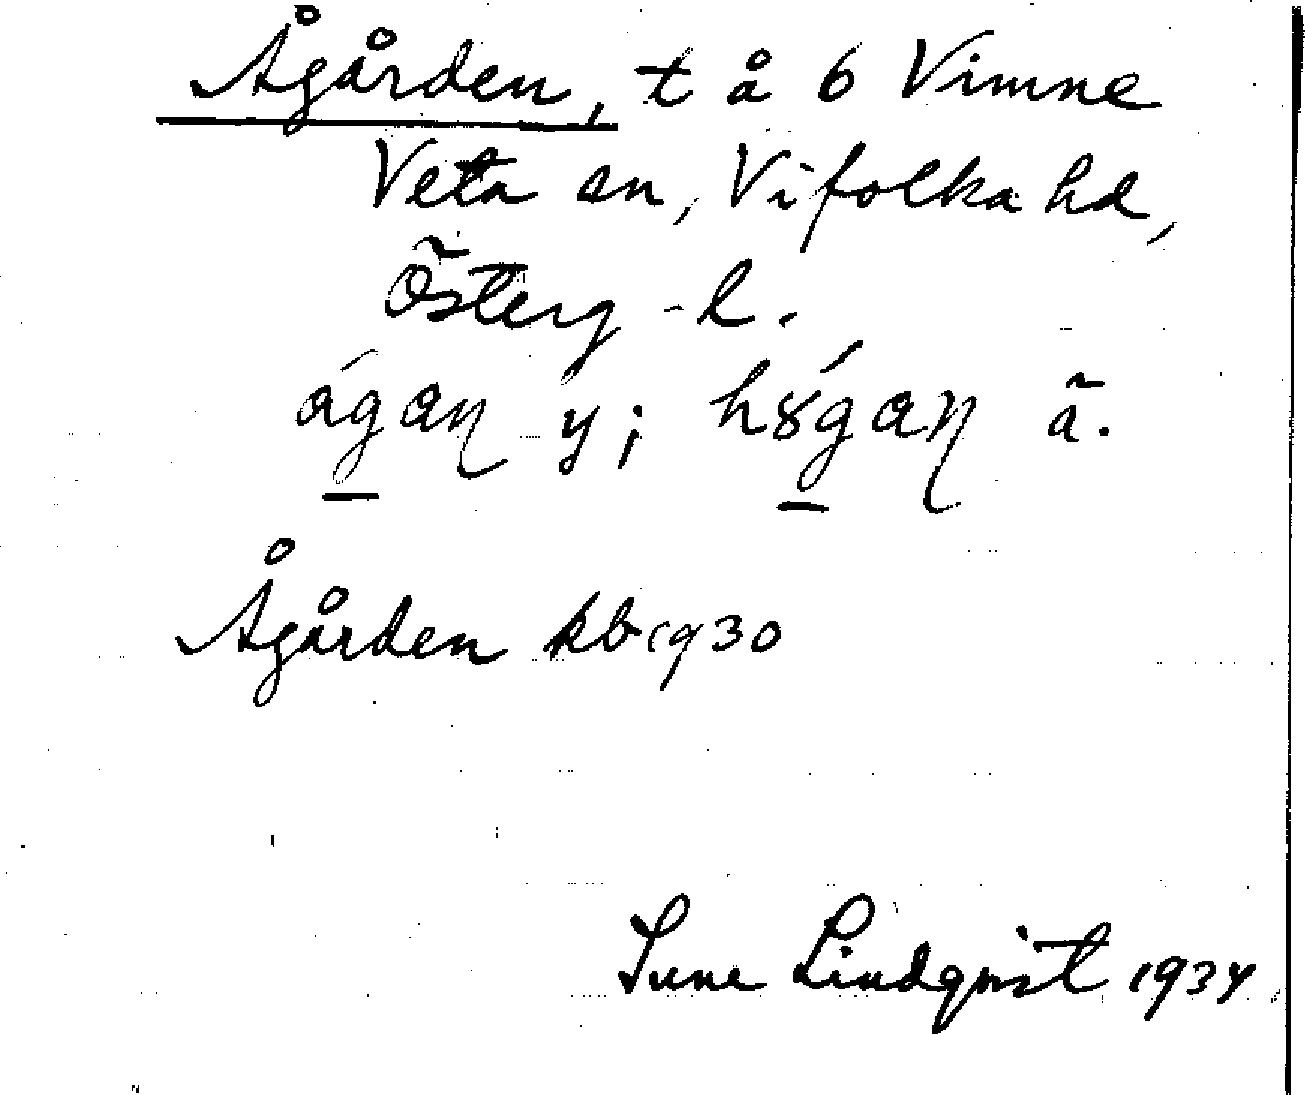 Ågården, t å 6 Vimne
Veta sn, Vifolka hd,
Österg -l.
ágaɳ y; hɤ́gaɳ ä.
Ågården kb 1930
Sune Lindqvist 1934